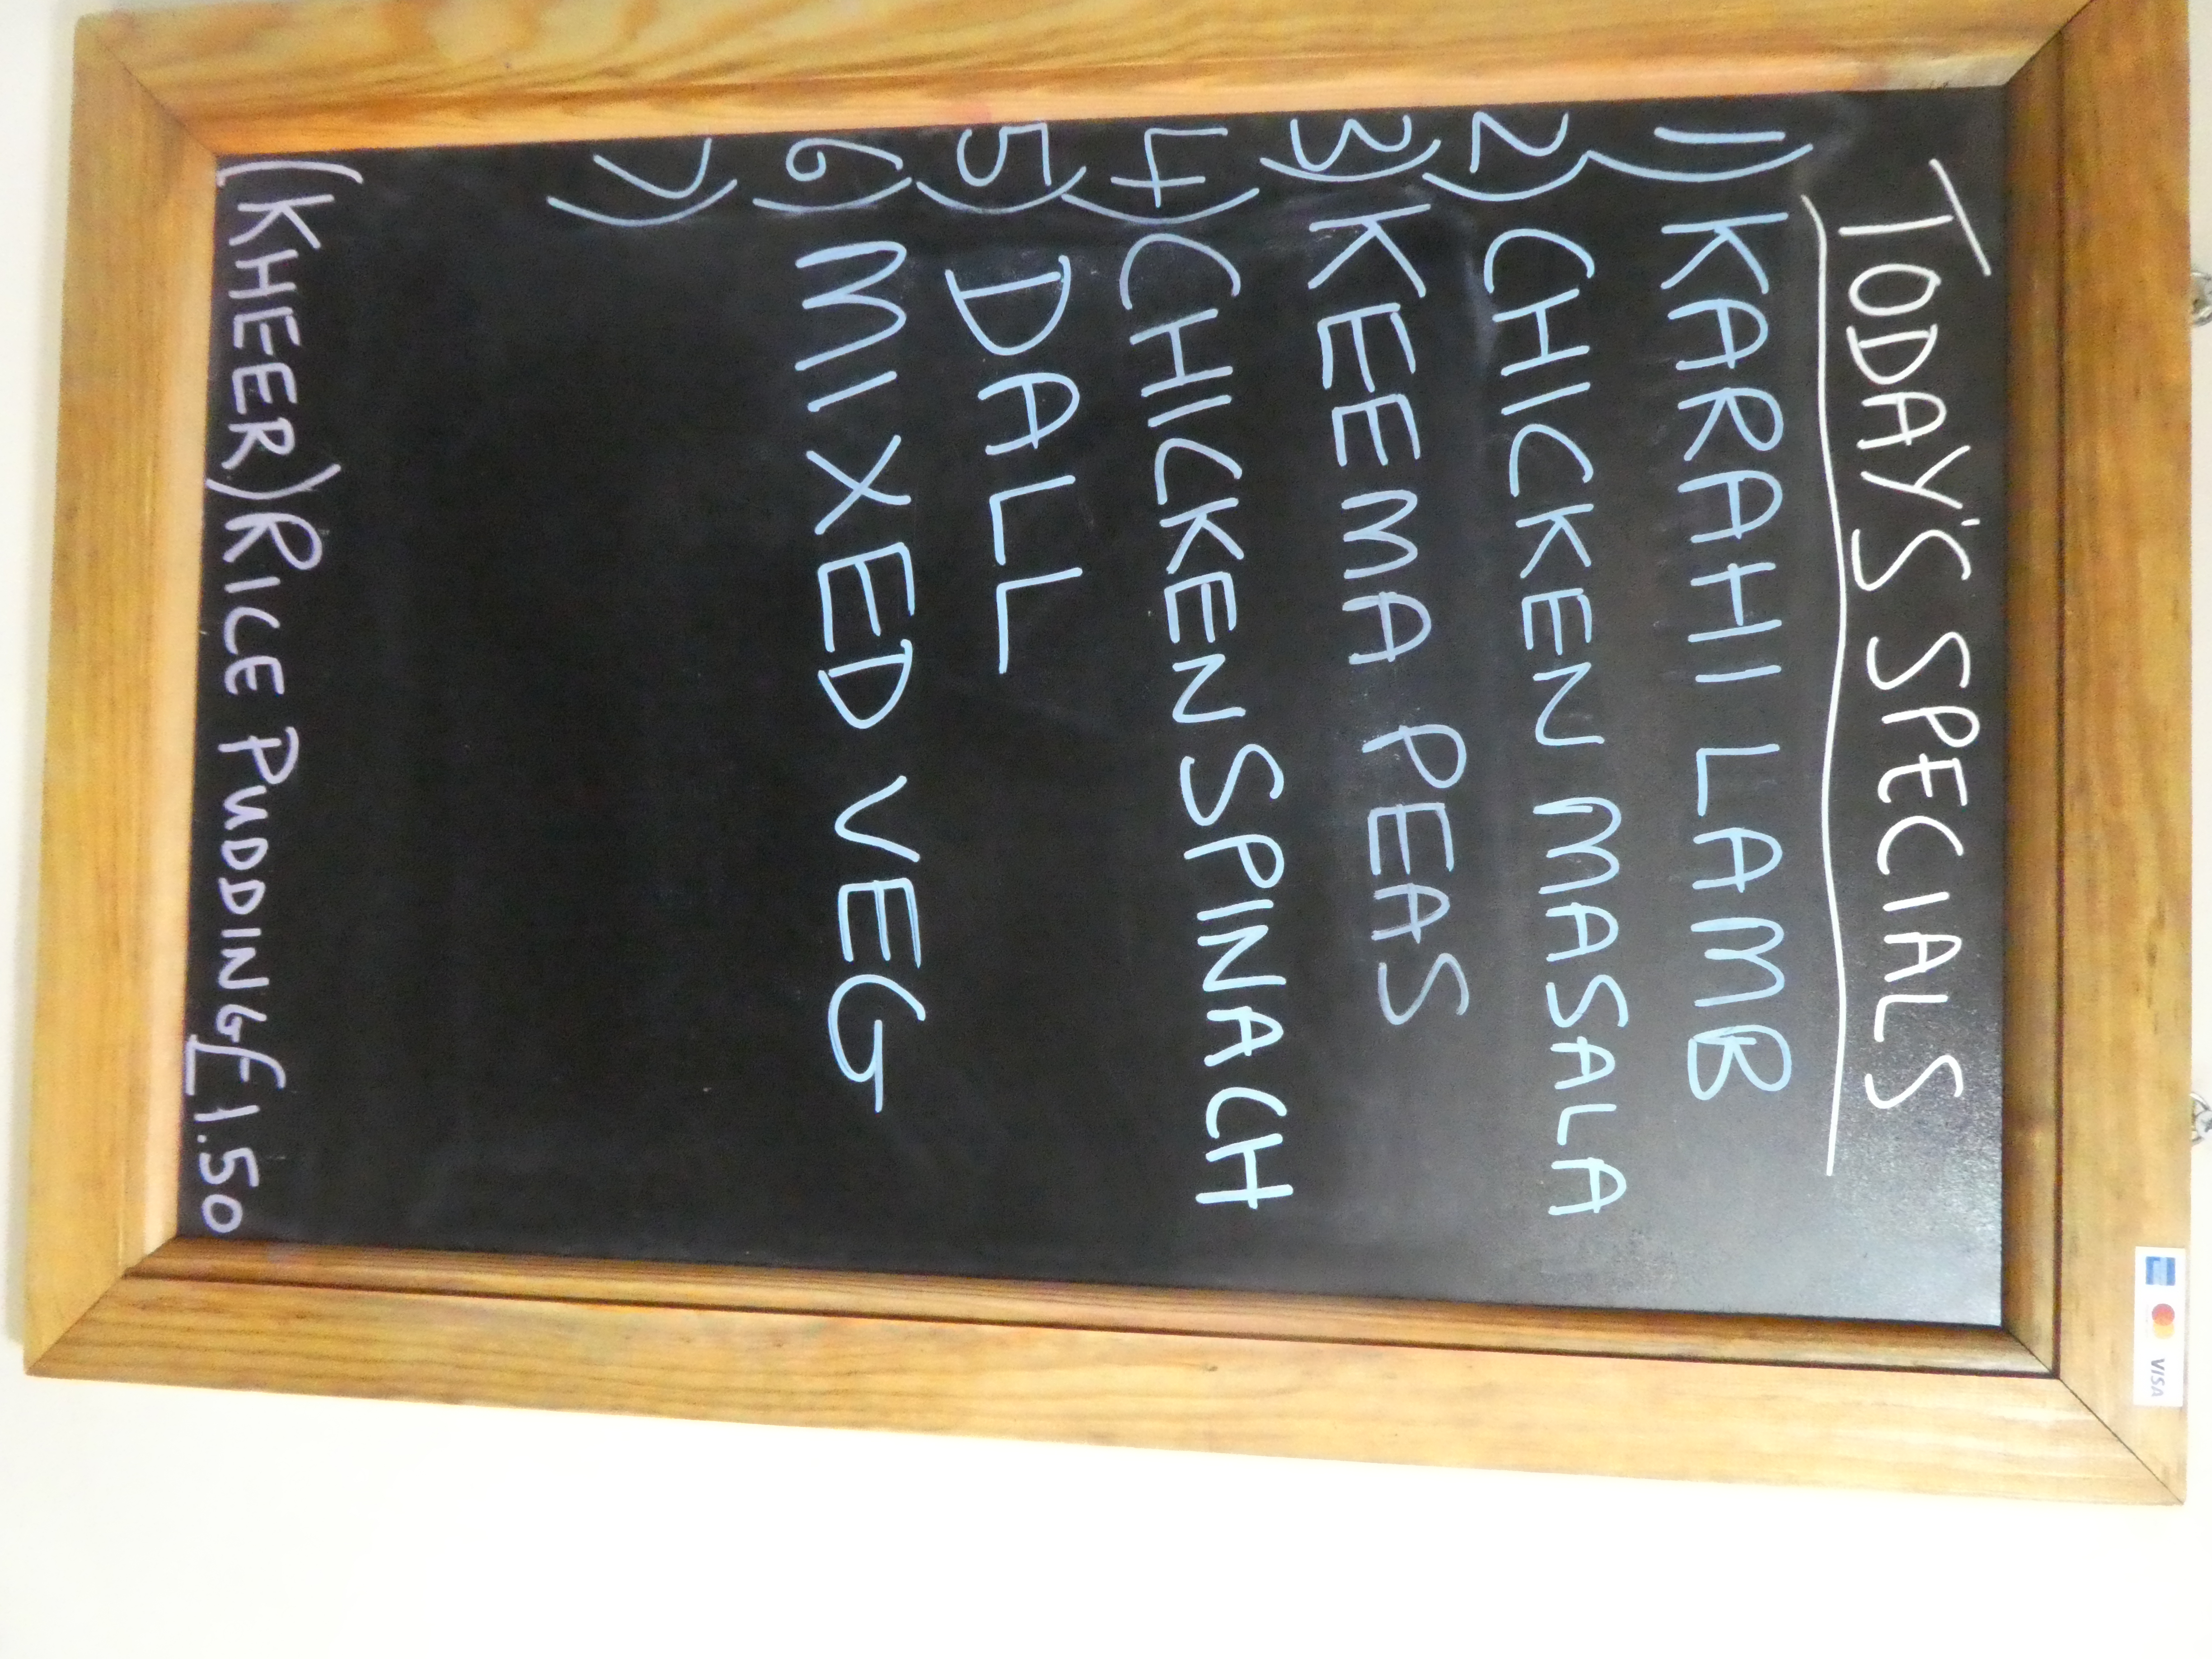 TODAY'S SPECIALS
1) KARAHI LAMB
2) CHICKEN MASALA
3) KEEMA PEAS
4) CHICKEN SPINACH
5) DALL
6) MIXED VEG
7)
(KHEER) RICE PUDDING £1.50
VISA